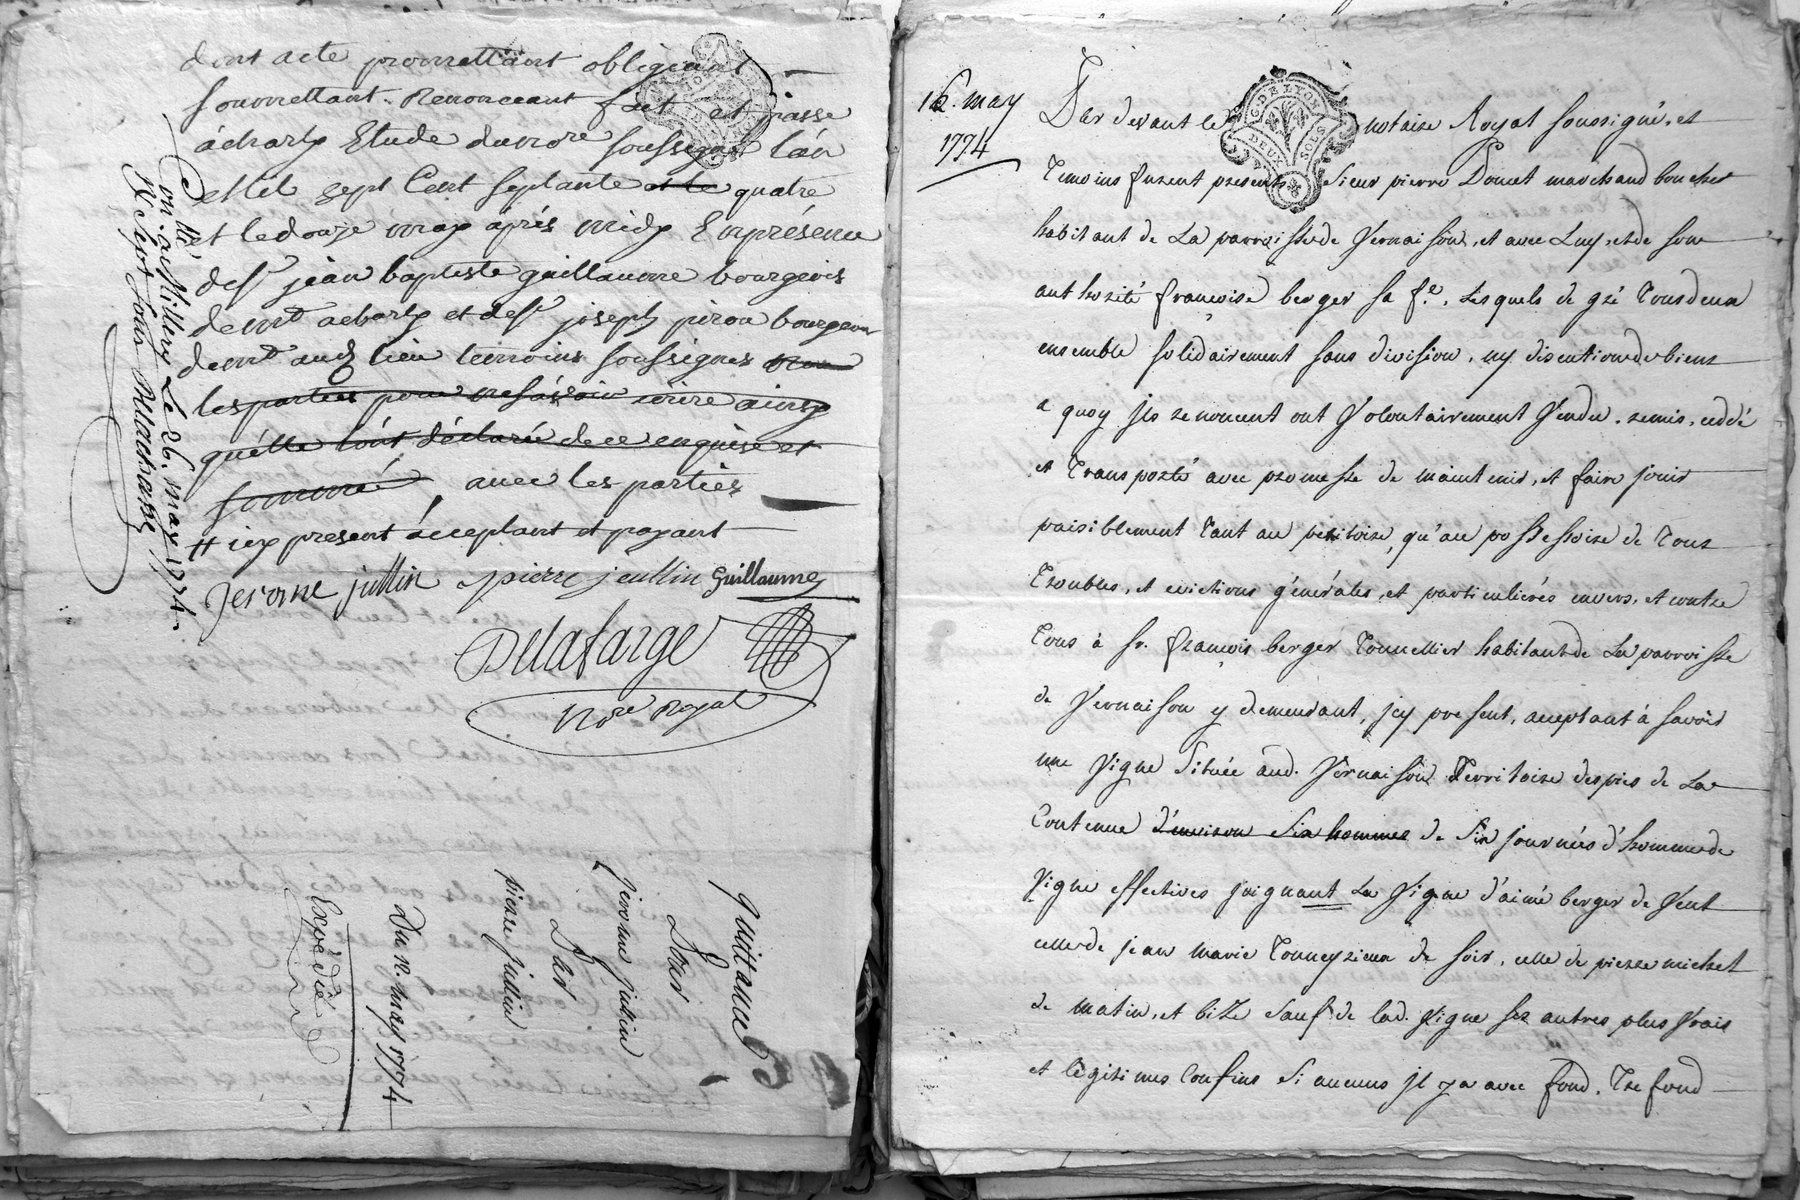 dont acte promettant obligeant
soumettant. Renonceant fait et passe
à charly Etude dunore soussigné l'an
mil sept Cent septante et le quatre
et le douze may après midy En présence
de sr jean baptiste guillaume bourgeois
demt a charly et de sr joseph piron bourgeois
demt aud lieu temoins soussignés non
les parties pour ne sçavoir écrire ainsy
qu'elle l'ont déclaré de ce enquise et
sommé avec les parties
# icy present acceptant et payant
Jerome jullin pierre jeullin Guillaume
Delafarge
Nore Royal
Conllé. au Millery Le 26. may 1774.
Quittance
Par
Jerome jullien
Par
pierre jullien
Du 12. may 1774
Expédié
16. may
1774
G. DE LYON
DEUX SOLS
Par devant le notaire Royal soussigné, et
Temoins furent presents Sieur pierre Doucet marchand boucher
habitant de La parroisse de Vernaison, et avec Luy, et de son
authorité françoise berger sa fe. Lesquels de gré Tous deux
ensemble solidairement sans division, ny discution de biens
a quoy jls renoncent ont Volontairement Vendu, remis, ceddé
et Transporté avec promesse de maintenir, et faire jouir
paisiblement Tant au petitoire, qu'au possessoire de Tous
Troubles, et evictions générales, et particulières envers, et contre
Tous à sr. françois berger Tonnellier habitant de La parroisse
de Vernaison y demeurant, jcy present, acceptant à savoir
une Vigne Située aud. Vernaison Territoire des pies de La
Contenue d'environ Six hommes de Six journées d'homme de
Vigne effectives joignant La Vigne d'aimé berger de Vent
celle de jean marie Tonneyrieux de soir, celle de pierre michel
de matin, et bize Sauf de lad. Vigne ses autres plus Vrais
et légitimes Confins Si aucuns jl y a avec fond, Tre fond